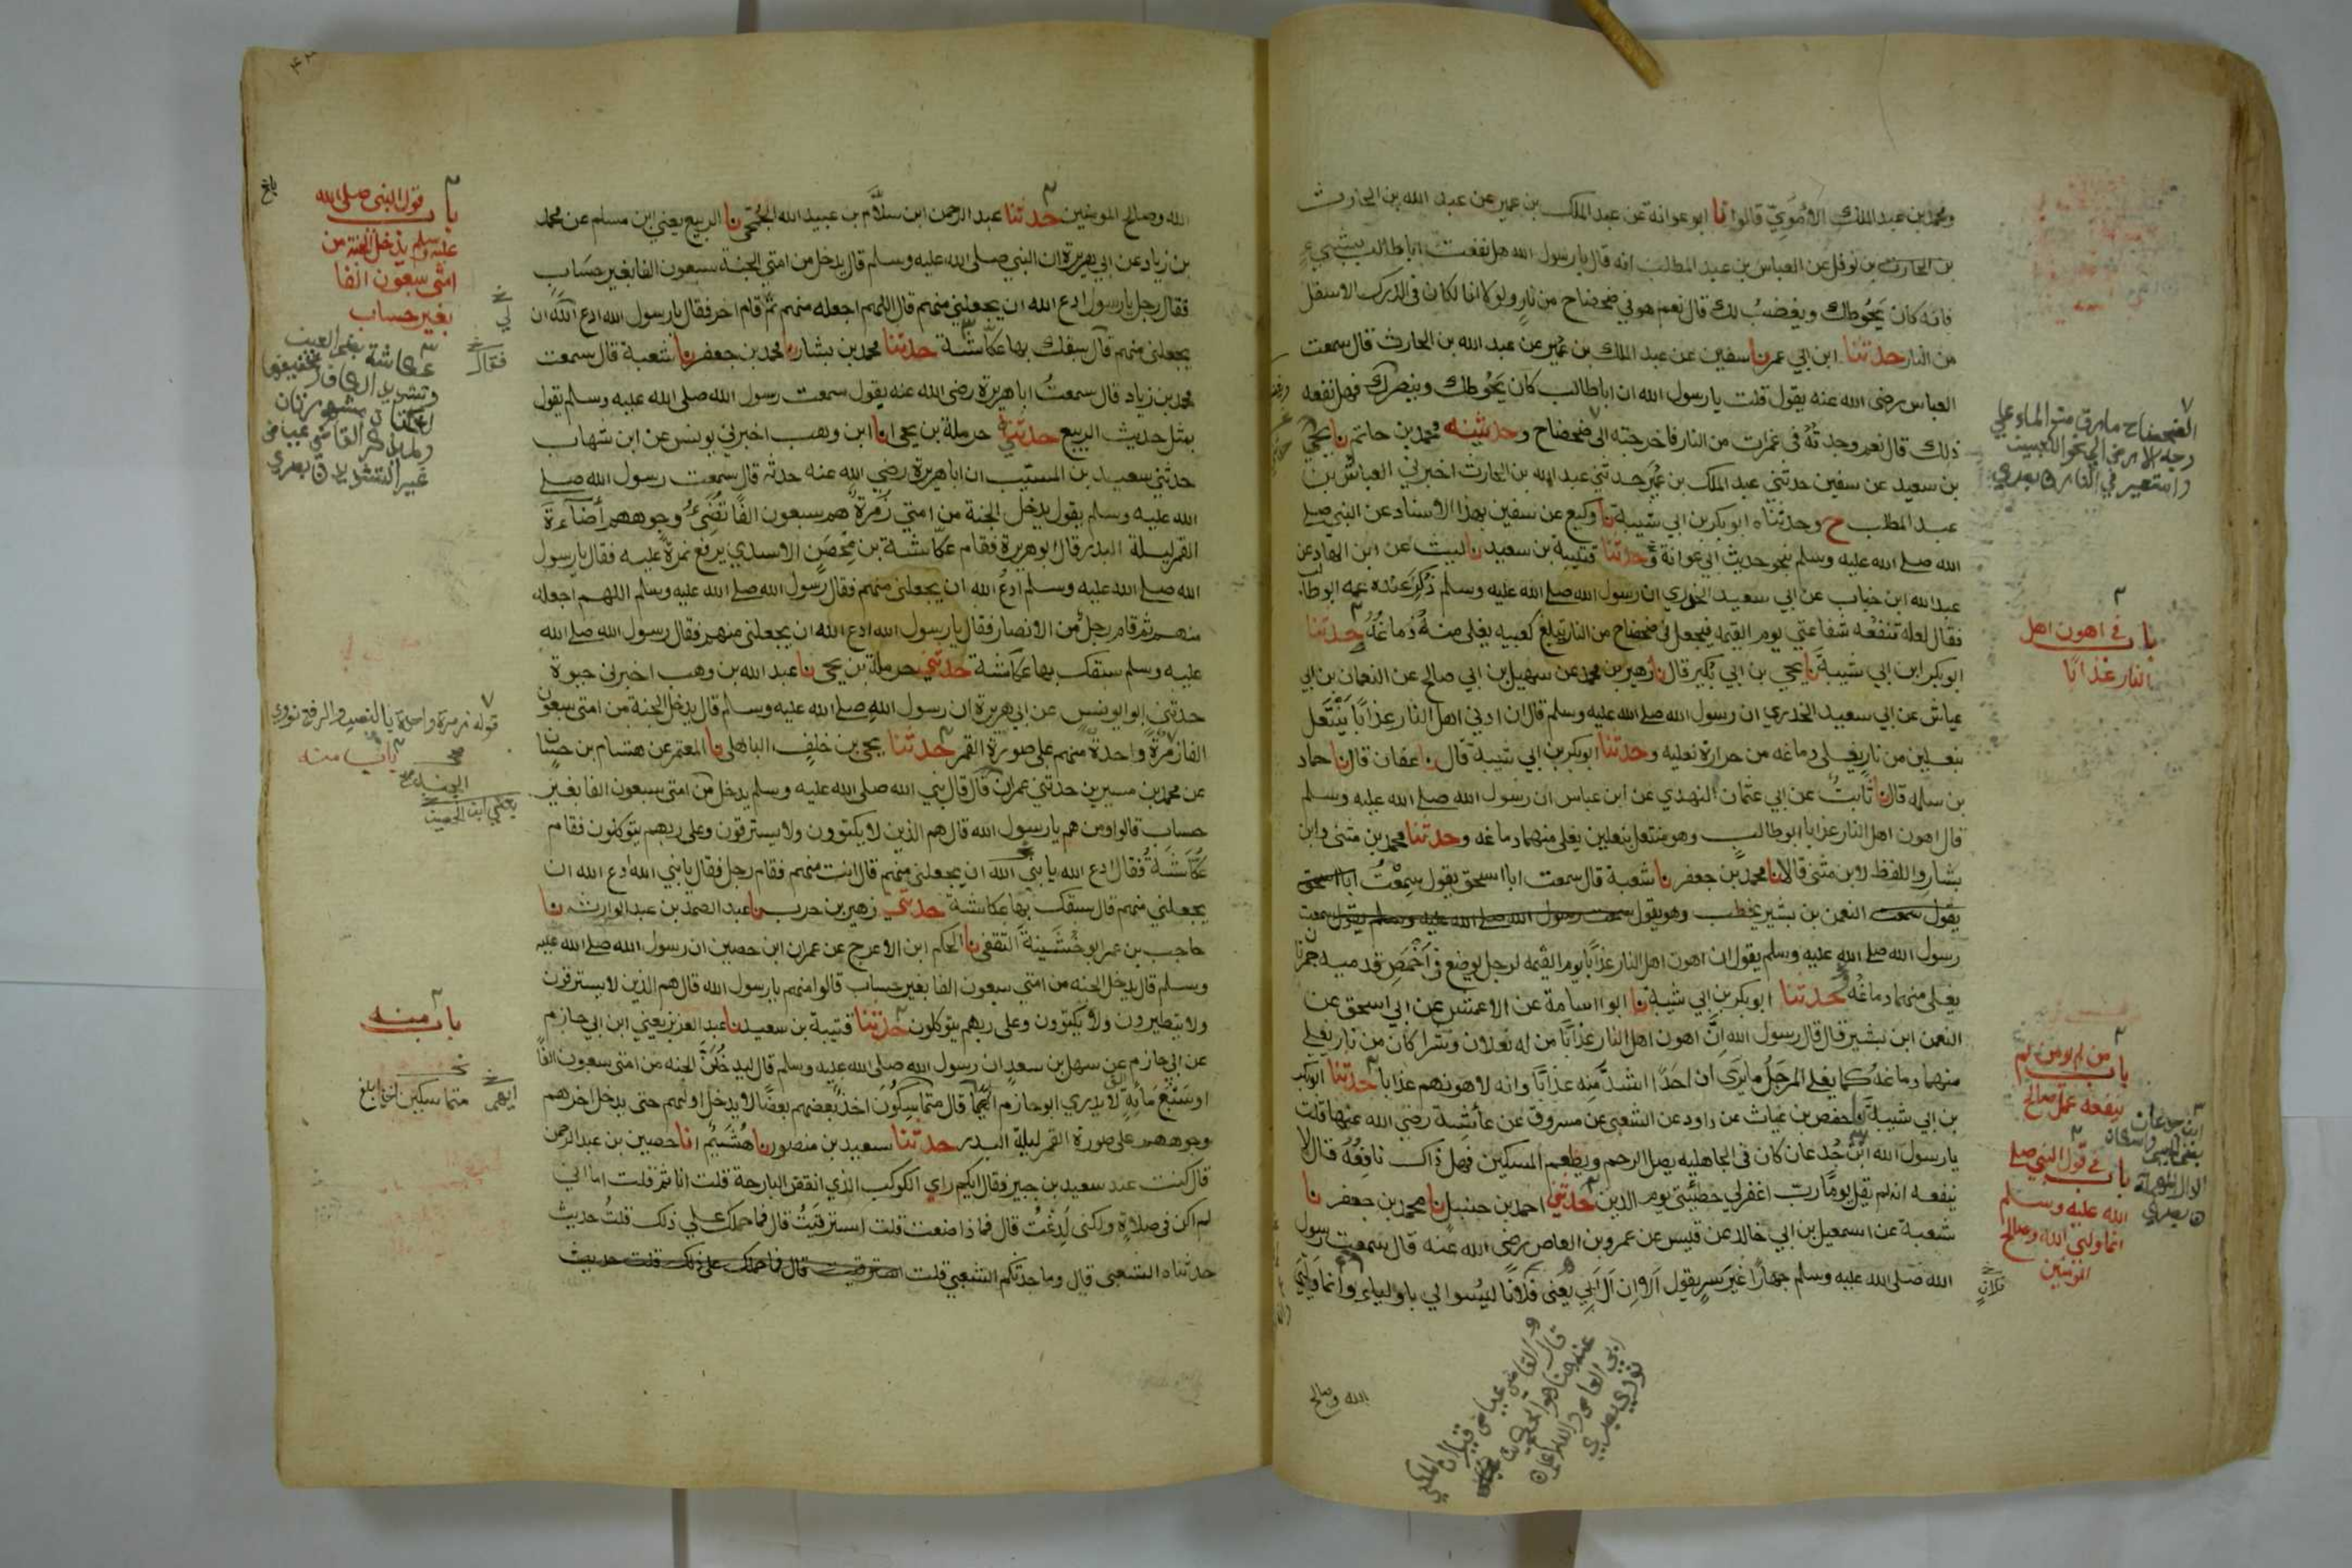 ومحمد بن عبد الملك الأموي قالوا نا ابو عوانة عن عبد الملك بن عمير عن عبد الله بن الحارث
بن الحارث بن نوفل عن العباس بن عبد المطلب انه قال يا رسول الله هل نفعت ابا طالب بشيء
فانه كان يحوطك ويغضب لك قال نعم هو في ضحضاح من نار ولولا انا لكان في الدرك الاسفل
من النار حدثنا ابن ابي عمر نا سفين عن عبد الملك بن عمير عن عبد الله بن الحارث قال سمعت
العباس رضى الله عنه يقول قلت يا رسول الله ان ابا طالب كان يحوطك وينصرك فهل نفعه
ذلك قال نعم وجدته في غمرات من النار فاخرجته الى ضحضاح وحدثنيه محمد بن حاتم نا يحيى
بن سعيد عن سفين حدثني عبد الملك بن عمير حدثني عبد الله بن الحارث اخبرني العباس بن
عبد المطلب ح وحدثناه ابو بكر بن ابي شيبة نا وكيع عن سفين بهذا الاسناد عن النبي صلى
الله صلى الله عليه وسلم بنحو حديث ابي عوانة وحدثنا قتيبة بن سعيد نا ليث عن ابن الهاد عن
عبد الله ابن خباب عن ابي سعيد الخدري ان رسول الله صلى الله عليه وسلم ذكر عنده عمه ابو طالب
فقال لعله تنفعه شفاعتي يوم القيمة فيجعل في ضحضاح من النار تبلغ كعبيه يغلى منه دماغه حدثنا
ابو بكر ابن ابي شيبة نا يحيى بن ابي بكير قال نا زهير بن محمد عن سهيل بن ابي صالح عن النعمان بن ابي
عياش عن ابي سعيد الخدري ان رسول الله صلى الله عليه وسلم قال ان ادنى اهل النار عذابا ينتعل
بنعلين من نار يغلى دماغه من حرارة نعليه وحدثنا ابو بكر بن ابي شيبة قال نا عفان قال نا حماد
بن سلمه قال نا ثابت عن ابي عثمان النهدي عن ابن عباس ان رسول الله صلى الله عليه وسلم
قال اهون اهل النار عذابا ابو طالب وهو منتعل بنعلين يغلى منهما دماغه وحدثنا محمد بن مثنى وابن
بشار واللفظ لابن مثنى قالا نا محمد بن جعفر نا شعبة قال سمعت ابا اسحق يقول سمعت ابا اسحق
يقول سمعت النعمن بن بشير يخطب وهو يقول سمعت رسول الله صلى الله عليه وسلم يقول سمعت
رسول الله صلى الله عليه وسلم يقول ان اهون اهل النار عذابا يوم القيمه لرجل يوضع في اخمص قدميه جمرتان
يغلى منهما دماغه وحدثنا ابو بكر بن ابي شيبة نا ابو اسامة عن الاعمش عن ابي اسحق عن
النعمن ابن بشير قال قال رسول الله ان اهون اهل النار عذابا من له نعلان وشراكان من نار يغلى
منهما دماغه كما يغلى المرجل ما يرى ان احدا اشد منه عذابا وانه لاهونهم عذابا حدثنا ابو بكر
بن ابي شيبة نا حفص بن غياث عن داود عن الشعبي عن مسروق عن عائشة رضى الله عنها قلت
يا رسول الله ابن جدعان كان في الجاهليه يصل الرحم ويطعم المسكين فهل ذاك نافعه قال لا
ينفعه انه لم يقل يوما رب اغفر لي خطيئتي يوم الدين حدثني احمد بن حنبل نا محمد بن جعفر نا
شعبة عن اسمعيل بن ابي خالد عن قيس عن عمرو بن العاص رضى الله عنه قال سمعت رسول
الله صلى الله عليه وسلم جهارا غير سر يقول الا ان آل ابي يعنى فلانا ليسوا لي باولياء وانما وليي
الله وصالح
باب في اهون اهل
النار عذابا
باب من لم يومن لم
ينفعه عمل صالح
باب في قول النبي صلى
الله عليه وسلم
انما وليي الله وصالح
المومنين
الله وصالح المومنين حدثنا عبد الرحمن ابن سلام بن عبيد الله الجمحي نا الربيع يعني ابن مسلم عن محمد
بن زياد عن ابي هريرة ان النبي صلى الله عليه وسلم قال يدخل من امتي الجنة سبعون الفا بغير حساب
فقال رجل يا رسول ادع الله ان يجعلني منهم قال اللهم اجعله منهم ثم قام اخر فقال يا رسول الله ادع الله ان
يجعلني منهم قال سبقك بها عكاشة حدثنا محمد بن بشار نا محمد بن جعفر نا شعبة قال سمعت
محمد بن زياد قال سمعت ابا هريرة رضى الله عنه يقول سمعت رسول الله صلى الله عليه وسلم يقول
بمثل حديث الربيع حدثني حرملة بن يحيى انا ابن وهب اخبرني يونس عن ابن شهاب
حدثني سعيد بن المسيب ان ابا هريرة رضي الله عنه حدثه قال سمعت رسول الله صلى
الله عليه وسلم يقول يدخل الجنة من امتي زمرة هم سبعون الفا تضيء وجوههم أضاءة
القمر ليلة البدر قال ابو هريرة فقام عكاشة بن محصن الاسدي يرفع نمرة عليه فقال يا رسول
الله صلى الله عليه وسلم ادع الله ان يجعلني منهم فقال رسول الله صلى الله عليه وسلم اللهم اجعله
منهم ثم قام رجل من الانصار فقال يا رسول الله ادع الله ان يجعلني منهم فقال رسول الله صلى الله
عليه وسلم سبقك بها عكاشة حدثني حرملة بن يحيى نا عبد الله بن وهب اخبرني حيوة
حدثني ابو يونس عن ابي هريرة ان رسول الله صلى الله عليه وسلم قال يدخل الجنة من امتي سبعون
الفا زمرة واحدة منهم على صورة القمر حدثنا يحيى بن خلف الباهلي نا المعتمر عن هشام بن حسان
عن محمد بن سيرين حدثني عمران قال قال نبي الله صلى الله عليه وسلم يدخل من امتي سبعون الفا بغير
حساب قالوا ومن هم يا رسول الله قال هم الذين لا يكتوون ولا يسترقون وعلى ربهم يتوكلون فقام
عكاشة فقال ادع الله يا نبي الله ان يجعلني منهم قال انت منهم فقام رجل فقال يا نبي الله ادع الله ان
يجعلني منهم قال سبقك بها عكاشة حدثني زهير بن حرب نا عبد الصمد بن عبد الوارث نا
حاجب بن عمر ابو خشينة الثقفي نا الحكم ابن الاعرج عن عمران ابن حصين ان رسول الله صلى الله عليه
وسلم قال يدخل الجنه من امتي سبعون الفا بغير حساب قالوا منهم يا رسول الله قال هم الذين لا يسترقون
ولا يتطيرون ولا يكتوون وعلى ربهم يتوكلون حدثنا قتيبة بن سعيد نا عبد العزيز يعني ابن ابي حازم
عن ابي حازم عن سهل بن سعد ان رسول الله صلى الله عليه وسلم قال ليدخلن الجنه من امتي سبعون الفا
او سبع مائة لا يدري ابو حازم ايهما قال متماسكون اخذ بعضهم بعضا لا يدخل اولهم حتى يدخل اخرهم
وجوههم على صورة القمر ليلة البدر حدثنا سعيد بن منصور نا هشيم انا حصين بن عبد الرحمن
قال كنت عند سعيد بن جبير فقال ايكم راي الكوكب الذي انقض البارحة قلت انا ثم قلت اما اني
لم اكن في صلاة ولكني لدغت قال فماذا صنعت قلت استرقيت قال فما حملك على ذلك قلت حديث
حدثناه الشعبي قال وما حدثكم الشعبي قلت استرقيت قال فما حملك على ذلك قلت حديث
باب قول النبي صلى الله
عليه وسلم يدخل الجنة من
امتي سبعون الفا
بغير حساب
قوله زمرة واحدة بالنصب والرفع نووي
باب منه
باب منه